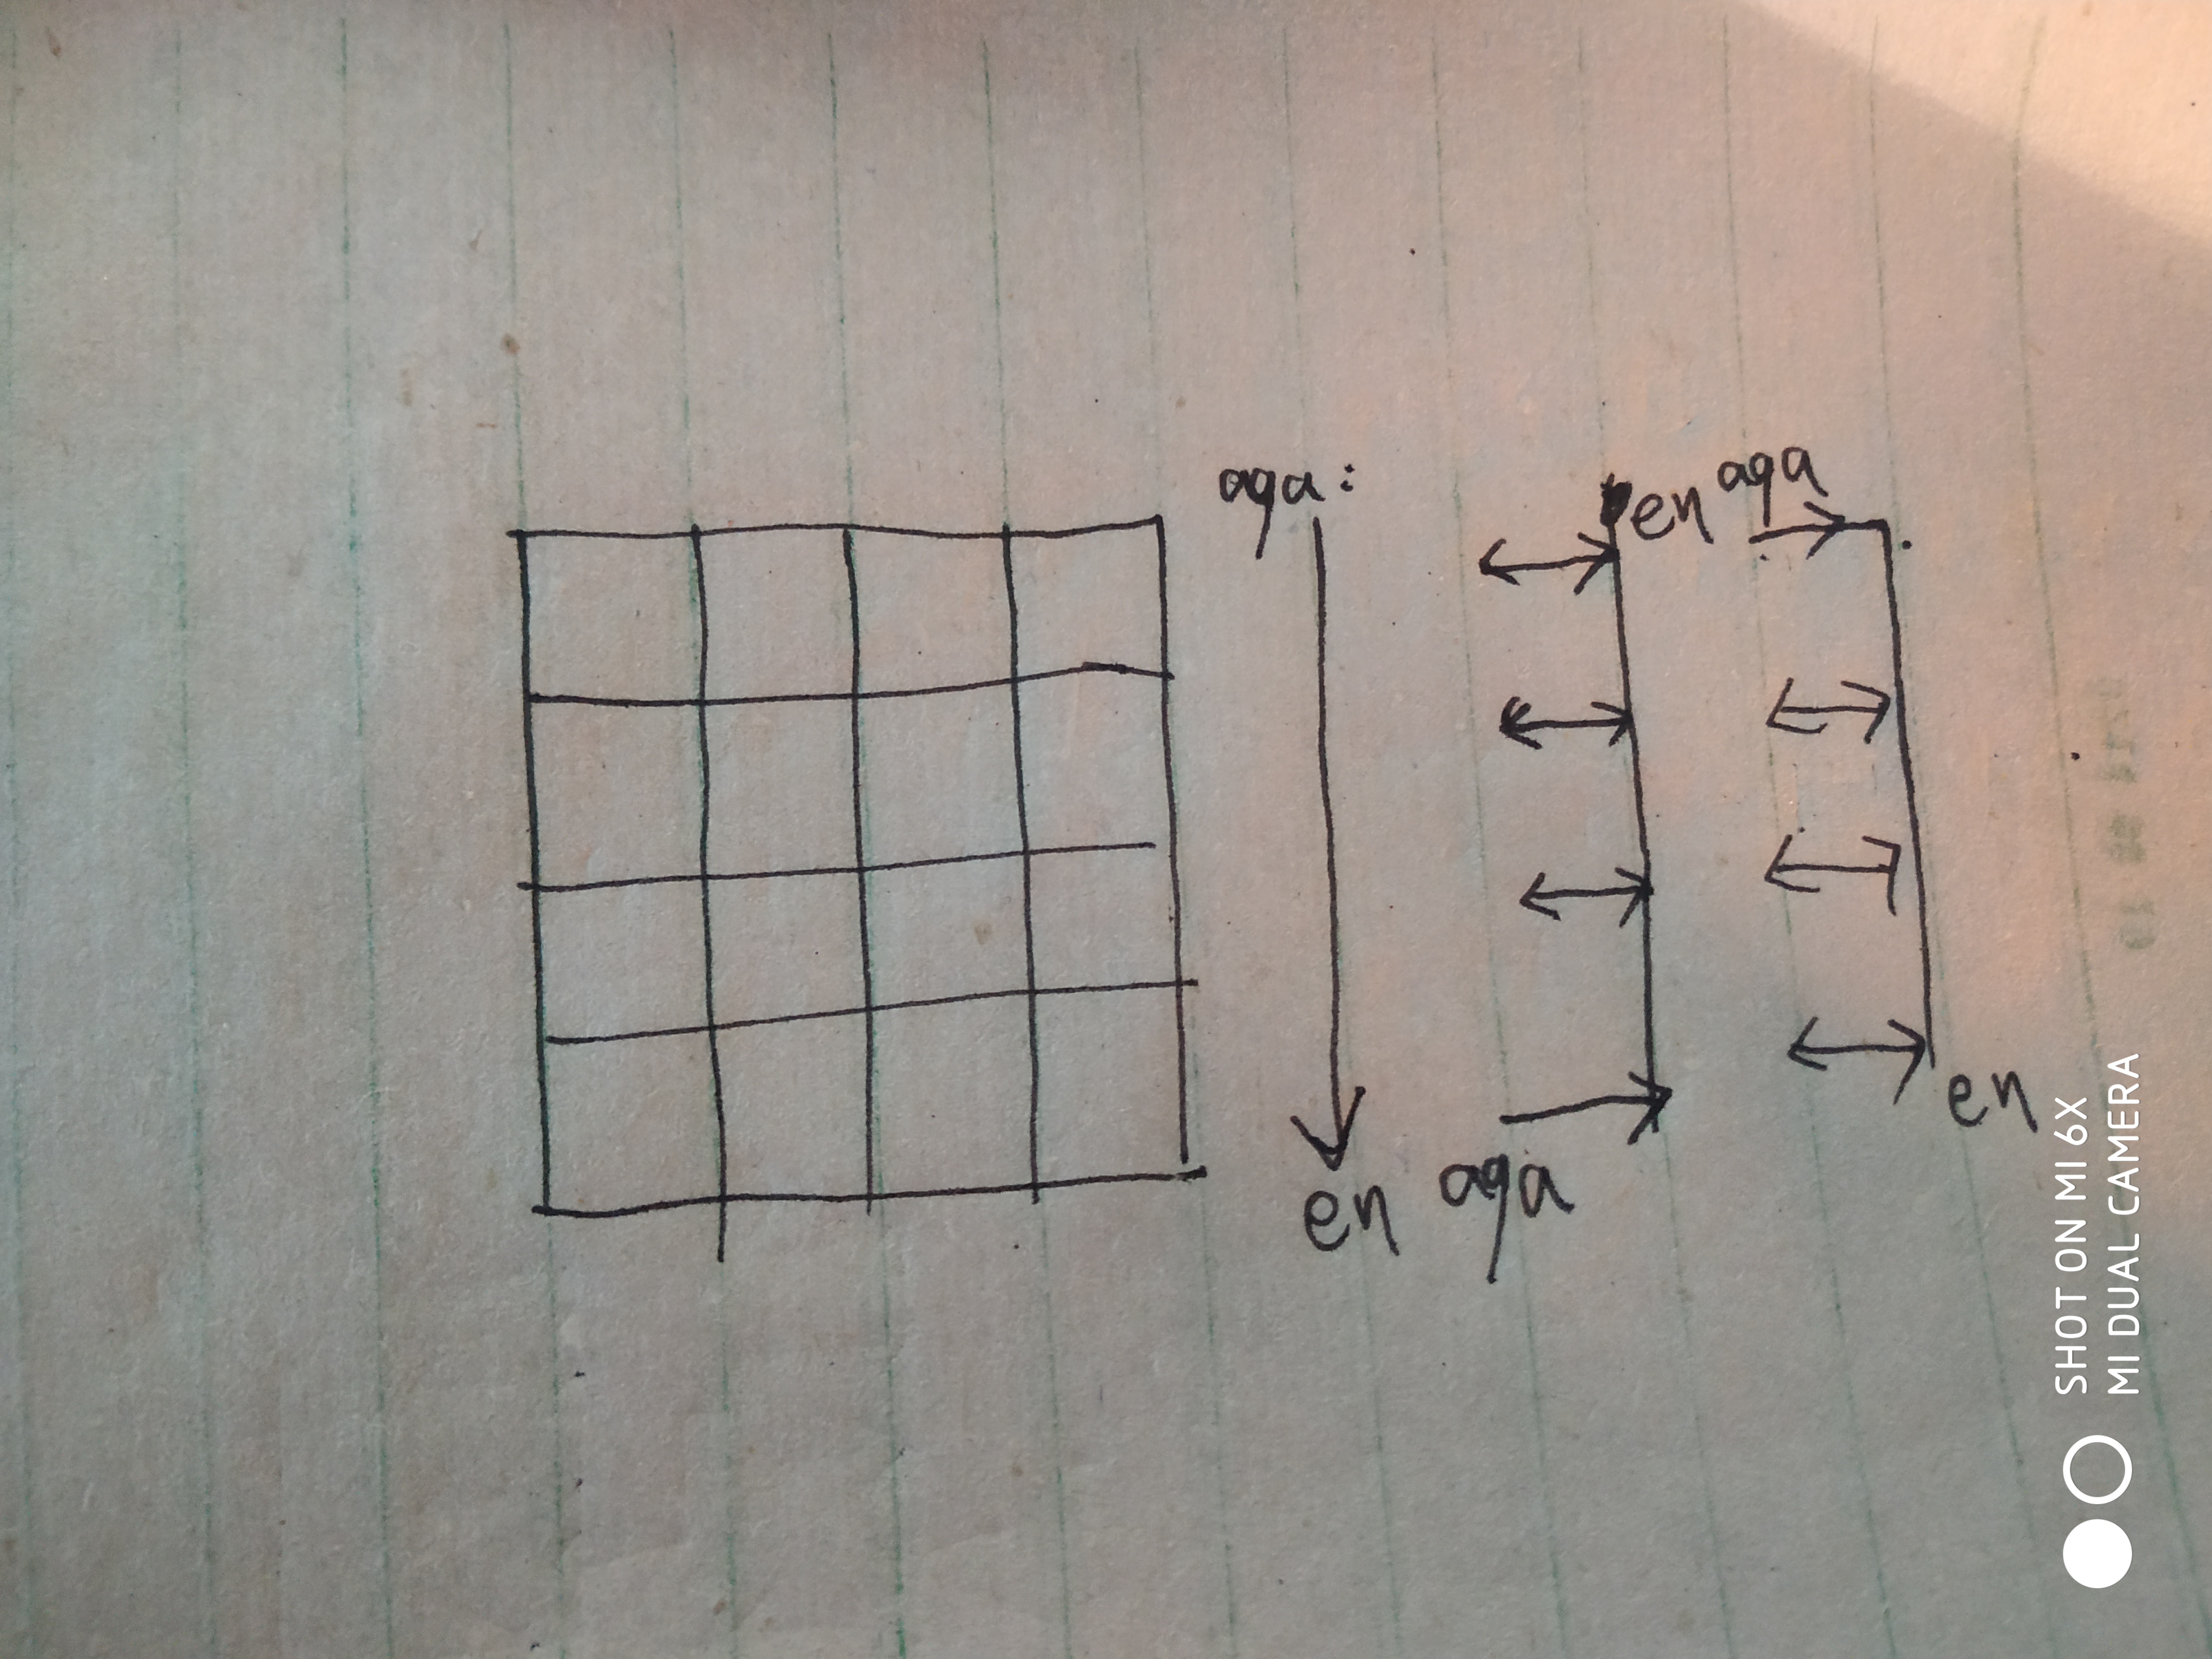 aga:
en
aga
en
aga
en
SHOT ON MI 6X
MI DUAL CAMERA